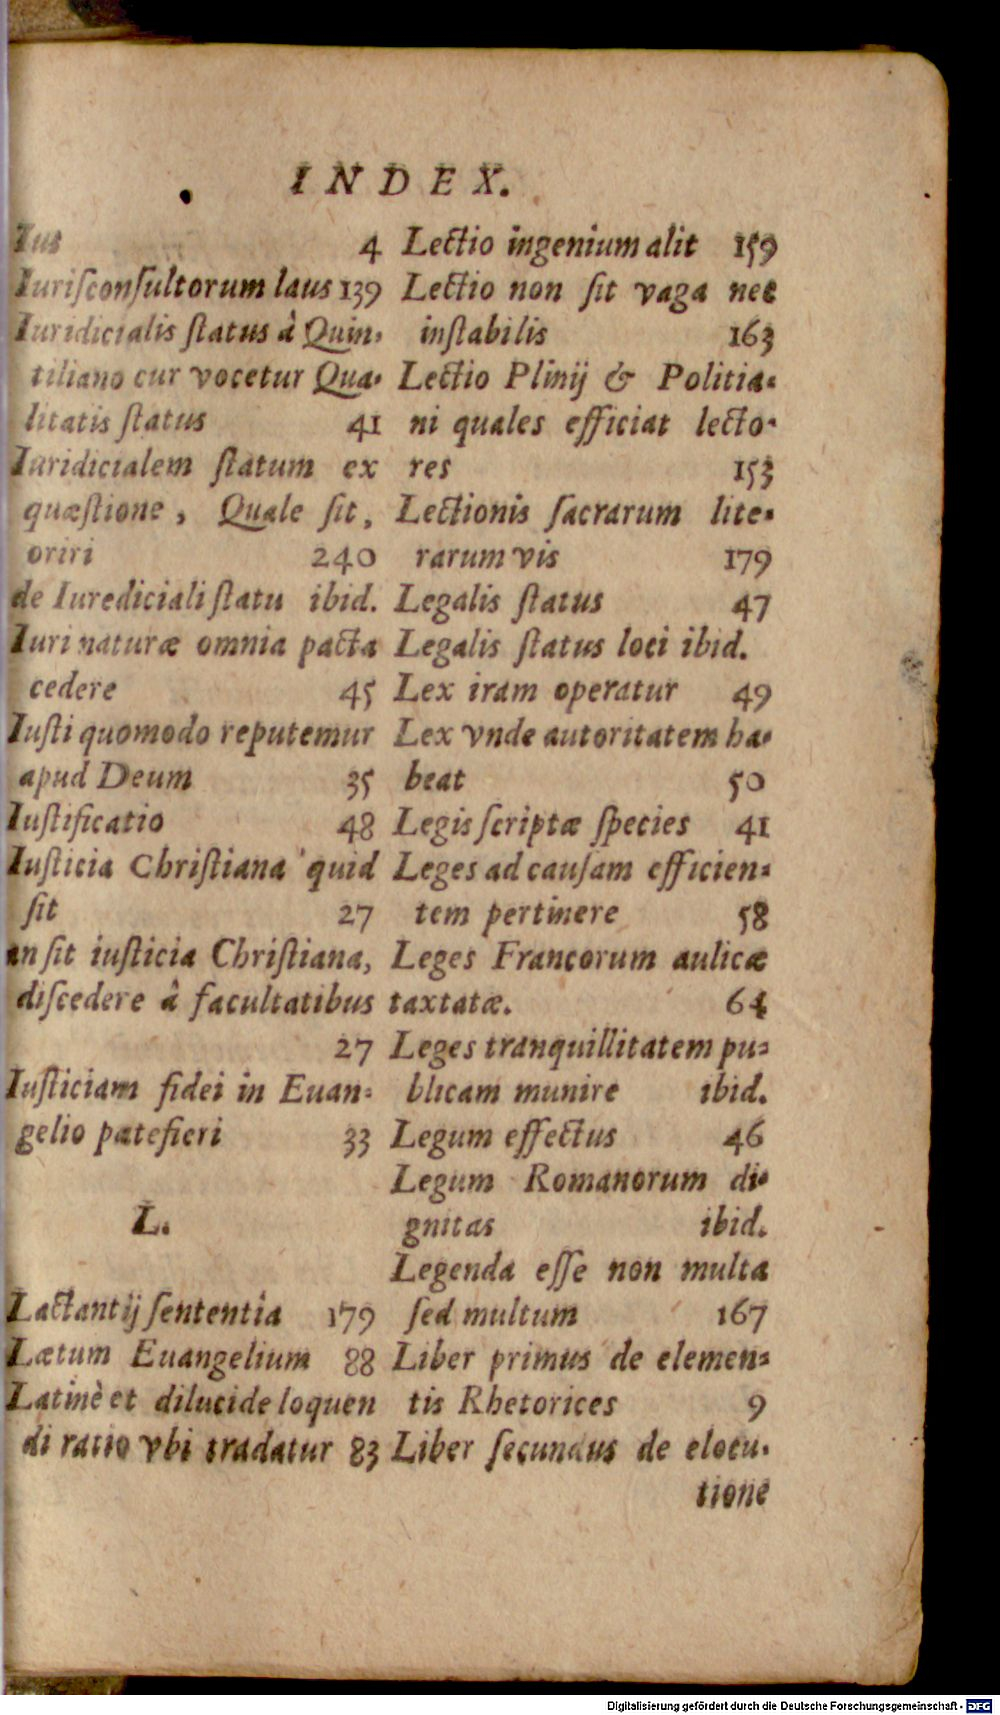 INDEX.
Ius 4
Iuriſconſultorum laus 139
Iuridicialis ſtatus â Quin-
tiliano cur vocetur Qua-
litatis ſtatus 41
Iuridicialem ſtatum ex
quæſtione, Quale ſit,
oriri 240
de Iurediciali ſtatu ibid.
Iuri naturæ omnia pacta
cedere 45
Iuſti quomodo reputemur
apud Deum 35
Iuſtificatio 48
Iuſticia Chriſtiana quid
ſit 27
an ſit iuſticia Chriſtiana,
diſcedere â facultatibus
27
Iuſticiam fidei in Euan-
gelio patefieri 33
L.
Lactantij ſententia 179
Lætum Euangelium 88
Latinè et dilucide loquen
di ratio vbi tradatur 83
Lectio ingenium alit 159
Lectio non ſit vaga nec
inſtabilis 163
Lectio Plinij & Politia-
ni quales efficiat lecto-
res 153
Lectionis ſacrarum lite-
rarum vis 179
Legalis ſtatus 47
Legalis ſtatus loci ibid.
Lex iram operatur 49
Lex vnde autoritatem ha-
beat 50
Legis ſcriptæ ſpecies 41
Leges ad cauſam efficien-
tem pertinere 58
Leges Francorum aulicæ
taxtatæ. 64
Leges tranquillitatem pu-
blicam munire ibid.
Legum effectus 46
Legum Romanorum di-
gnitas ibid.
Legenda eſſe non multa
ſed multum 167
Liber primus de elemen-
tis Rhetorices 9
Liber ſecundus de elocu-
tione
Digitalisierung gefördert durch die Deutsche Forschungsgemeinschaft - DFG